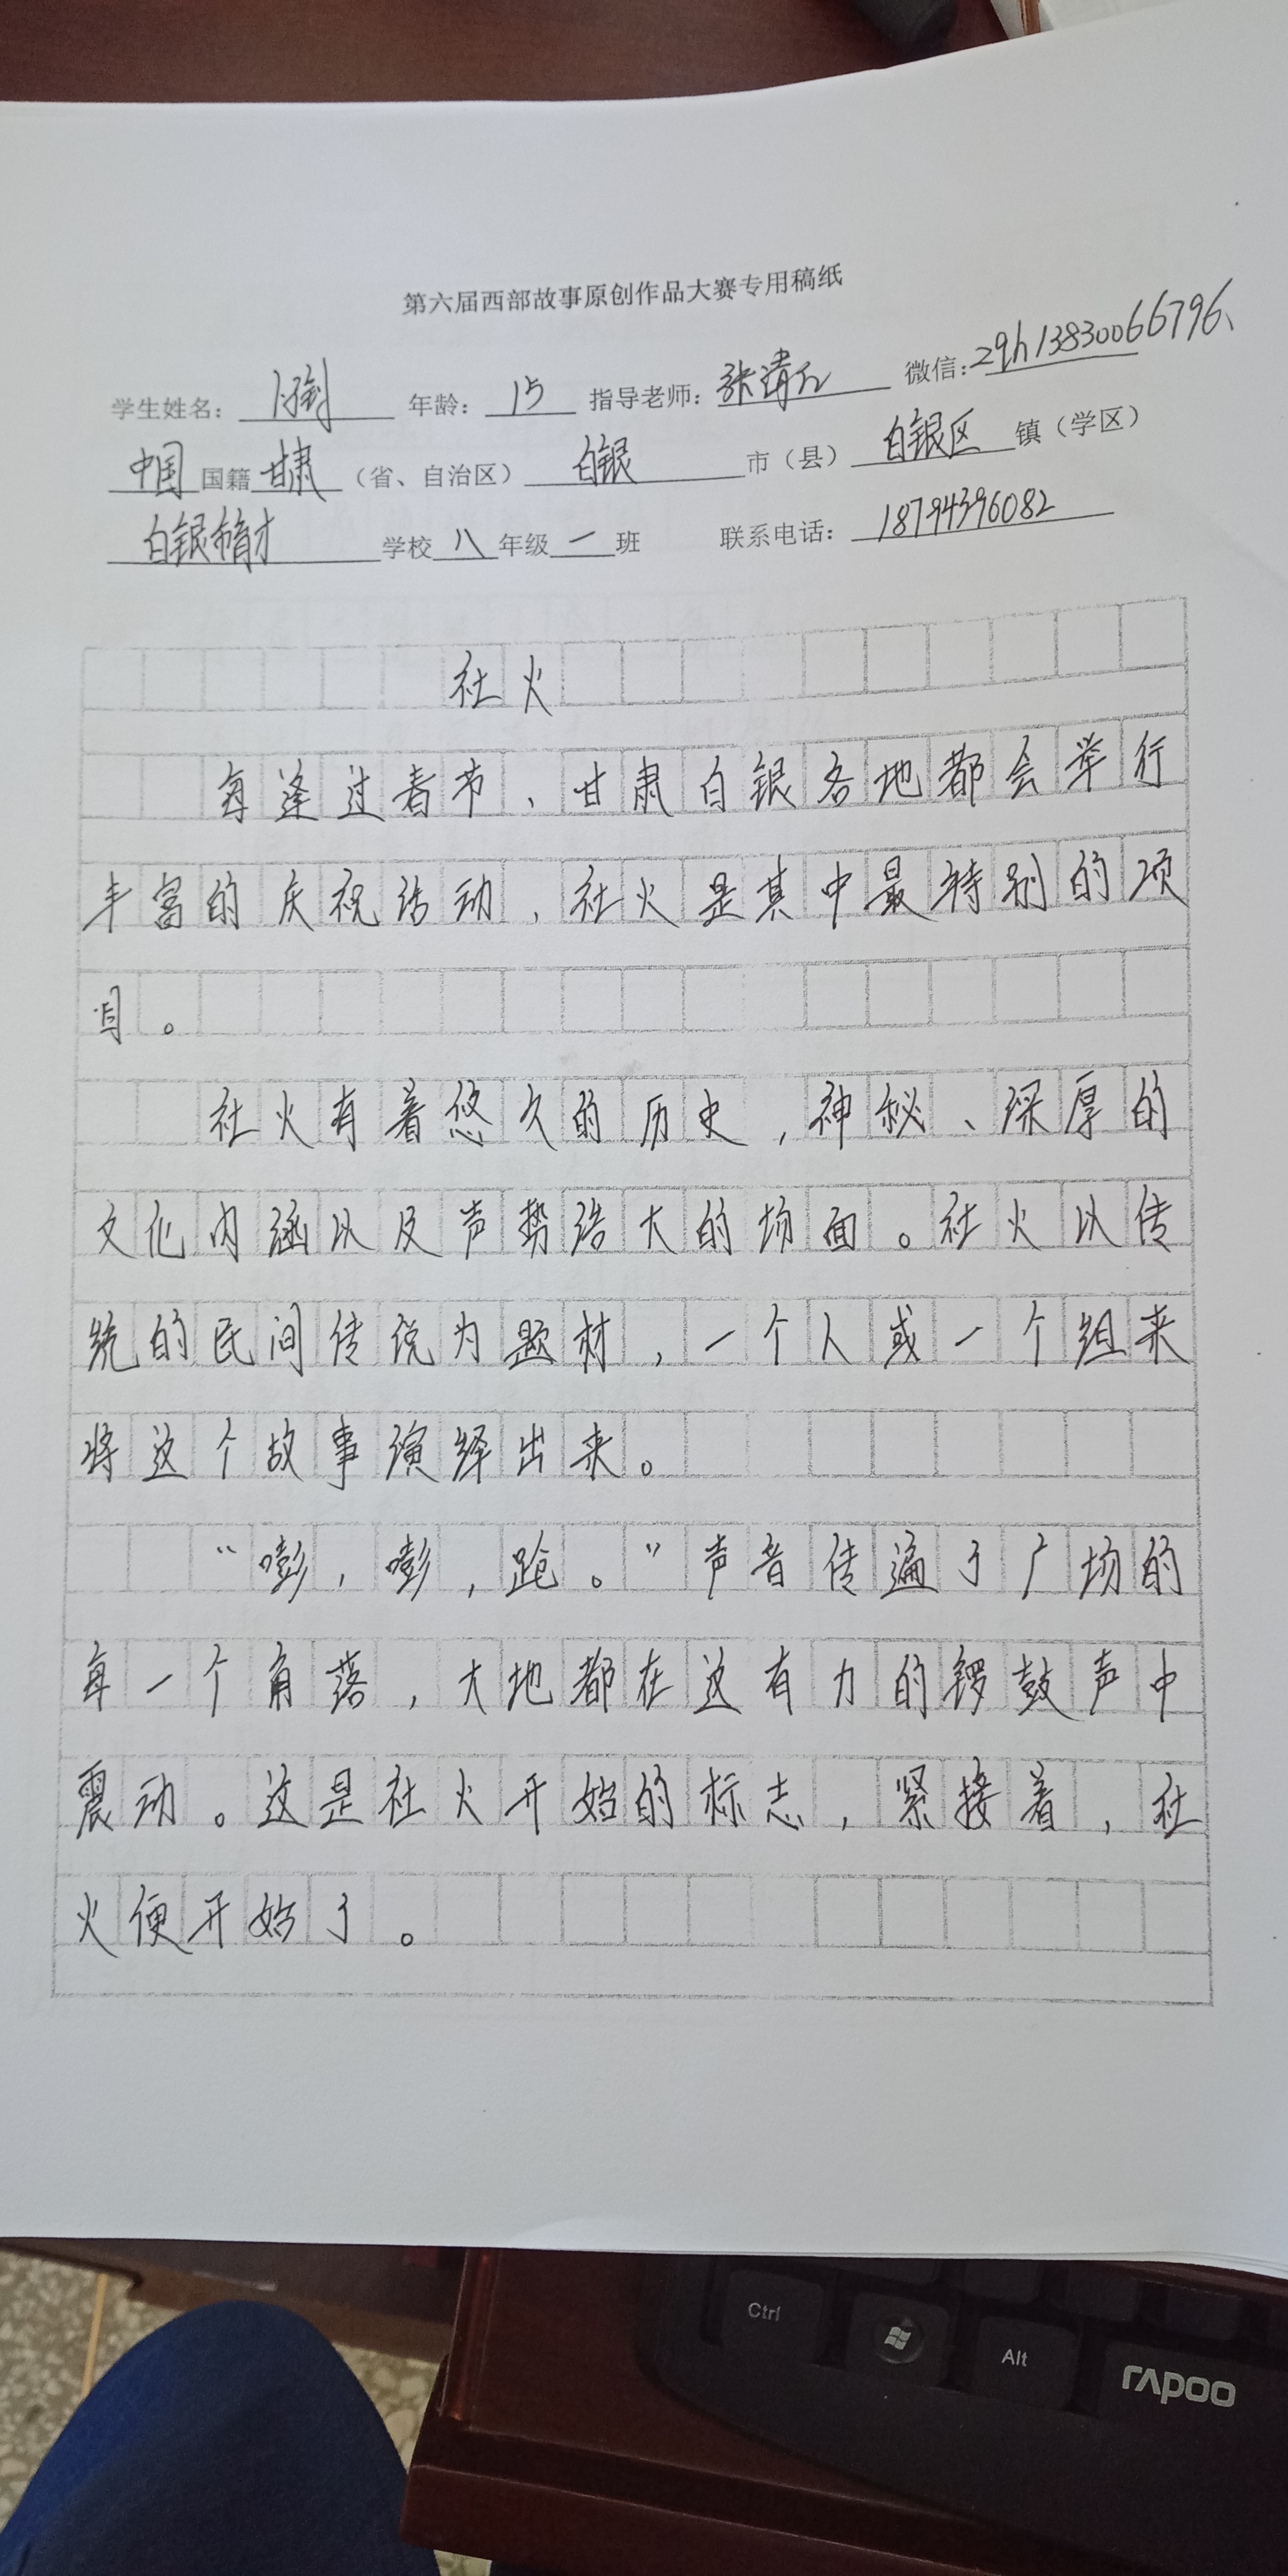 第六届西部故事原创作品大赛专用稿纸
学生姓名: 年龄: 15 指导老师: 张 微信: zqh13830066796、
中国 国籍 甘肃 (省、自治区) 白银 市(县) 白银区 镇(学区)
白银育才 学校 八 年级 一 班 联系电话: 18794396082
社火
每逢过春节、甘肃白银各地都会举行
丰富的庆祝活动、社火是其中最特别的项
目。
社火有着悠久的历史,神秘、深厚的
文化内涵以及声势浩大的场面。社火以传
统的民间传说为题材,一个人或一个组来
将这个故事演绎出来。
“嘭,嘭,跄。”声音传遍了广场的
每一个角落,大地都在这有力的锣鼓声中
震动。这是社火开始的标志,紧接着,社
火便开始了。
Ctrl
Alt
rapoo